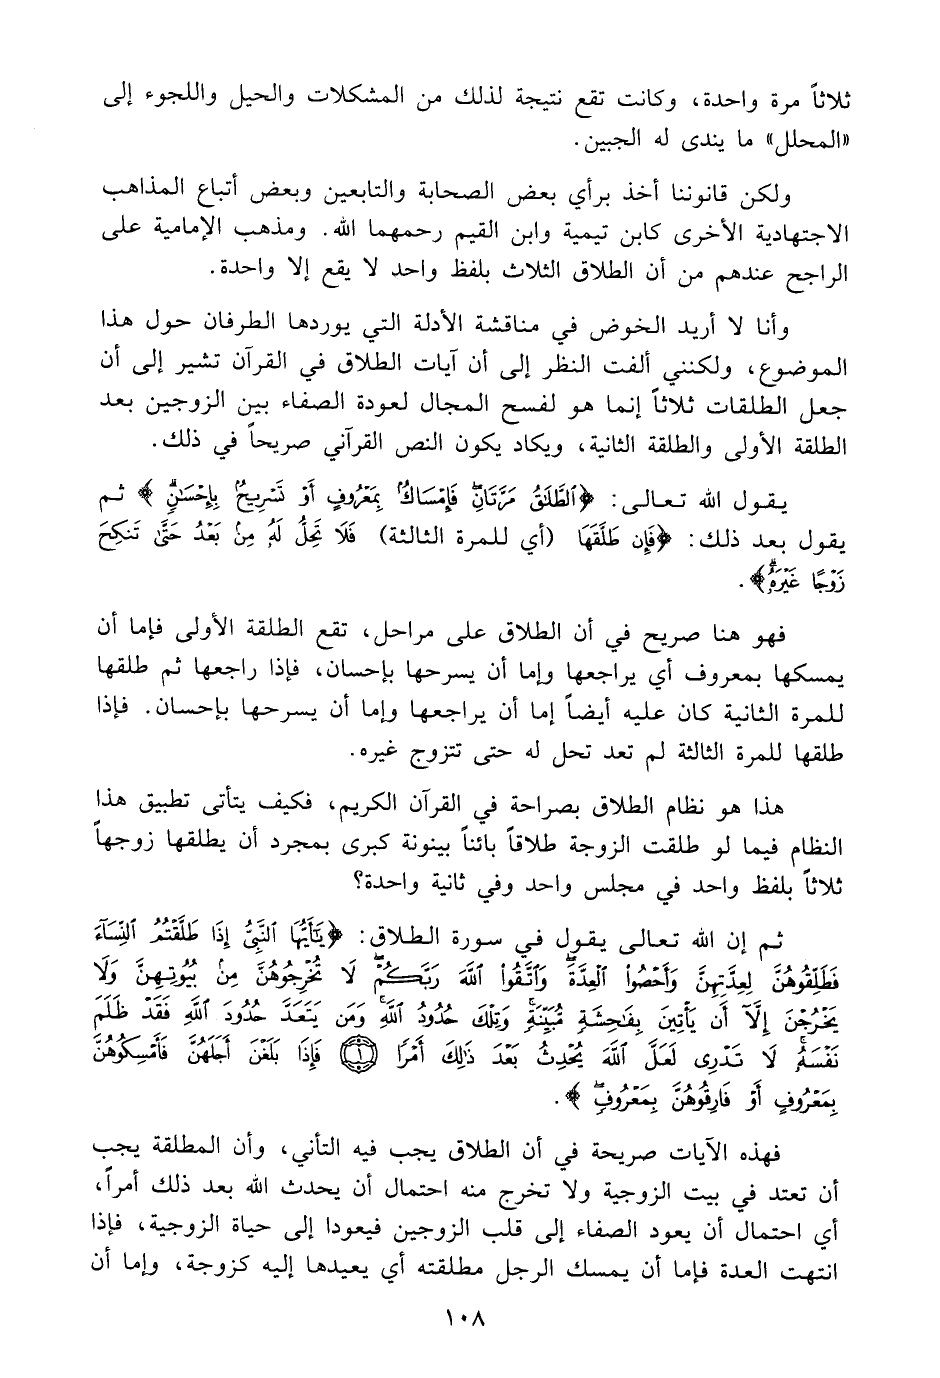 ثلاثاً مرة واحدة، وكانت تقع نتيجة لذلك من المشكلات والحيل واللجوء إلى
«المحلل» ما يندى له الجبين.
ولكن قانوننا أخذ برأي بعض الصحابة والتابعين وبعض أتباع المذاهب
الاجتهادية الأخرى كابن تيمية وابن القيم رحمهما الله. ومذهب الإمامية على
الراجح عندهم من أن الطلاق الثلاث بلفظ واحد لا يقع إلا واحدة.
وأنا لا أريد الخوض في مناقشة الأدلة التي يوردها الطرفان حول هذا
الموضوع، ولكنني ألفت النظر إلى أن آيات الطلاق في القرآن تشير إلى أن
جعل الطلقات ثلاثاً إنما هو لفسح المجال لعودة الصفاء بين الزوجين بعد
الطلقة الأولى والطلقة الثانية، ويكاد يكون النص القرآني صريحاً في ذلك.
يقول الله تعالى: ﴿ٱلطَّلَٰقُ مَرَّتَانِۖ فَإِمْسَاكُۢ بِمَعْرُوفٍ أَوْ تَسْرِيحُۢ بِإِحْسَٰنٍۗ﴾ ثم
يقول بعد ذلك: ﴿فَإِن طَلَّقَهَا (أي للمرة الثالثة) فَلَا تَحِلُّ لَهُۥ مِنۢ بَعْدُ حَتَّىٰ تَنكِحَ
زَوْجًا غَيْرَهُۥۗ﴾.
فهو هنا صريح في أن الطلاق على مراحل، تقع الطلقة الأولى فإما أن
يمسكها بمعروف أي يراجعها وإما أن يسرحها بإحسان، فإذا راجعها ثم طلقها
للمرة الثانية كان عليه أيضاً إما أن يراجعها وإما أن يسرحها بإحسان. فإذا
طلقها للمرة الثالثة لم تعد تحل له حتى تتزوج غيره.
هذا هو نظام الطلاق بصراحة في القرآن الكريم، فكيف يتأتى تطبيق هذا
النظام فيما لو طلقت الزوجة طلاقاً بائناً بينونة كبرى بمجرد أن يطلقها زوجها
ثلاثاً بلفظ واحد في مجلس واحد وفي ثانية واحدة؟
ثم إن الله تعالى يقول في سورة الطلاق: ﴿يَٰٓأَيُّهَا ٱلنَّبِىُّ إِذَا طَلَّقْتُمُ ٱلنِّسَآءَ
فَطَلِّقُوهُنَّ لِعِدَّتِهِنَّ وَأَحْصُوا۟ ٱلْعِدَّةَۖ وَٱتَّقُوا۟ ٱللَّهَ رَبَّكُمْۖ لَا تُخْرِجُوهُنَّ مِنۢ بُيُوتِهِنَّ وَلَا
يَخْرُجْنَ إِلَّآ أَن يَأْتِينَ بِفَٰحِشَةٍ مُّبَيِّنَةٍۚ وَتِلْكَ حُدُودُ ٱللَّهِۚ وَمَن يَتَعَدَّ حُدُودَ ٱللَّهِ فَقَدْ ظَلَمَ
نَفْسَهُۥۚ لَا تَدْرِى لَعَلَّ ٱللَّهَ يُحْدِثُ بَعْدَ ذَٰلِكَ أَمْرًا ﴿١﴾ فَإِذَا بَلَغْنَ أَجَلَهُنَّ فَأَمْسِكُوهُنَّ
بِمَعْرُوفٍ أَوْ فَارِقُوهُنَّ بِمَعْرُوفٍۖ﴾.
فهذه الآيات صريحة في أن الطلاق يجب فيه التأني، وأن المطلقة يجب
أن تعتد في بيت الزوجية ولا تخرج منه احتمال أن يحدث الله بعد ذلك أمراً،
أي احتمال أن يعود الصفاء إلى قلب الزوجين فيعودا إلى حياة الزوجية، فإذا
انتهت العدة فإما أن يمسك الرجل مطلقته أي يعيدها إليه كزوجة، وإما أن
١٠٨